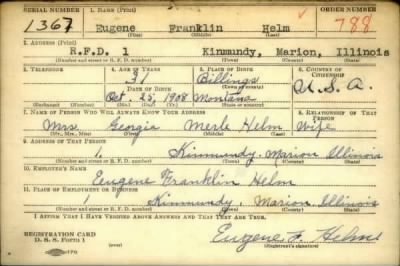 SERIAL NUMBER 1. NAME (Print) ORDER NUMBER
1367 Eugene Franklin Helm 788
(First) (Middle) (Last)
2. ADDRESS (Print)
R.F.D. 1 Kinmundy, Marion, Illinois
(Number and street or R. F. D. number) (Town) (County) (State)
3. TELEPHONE 4. AGE IN YEARS 5. PLACE OF BIRTH 6. COUNTRY OF CITIZENSHIP
31 Billings U.S.A.
DATE OF BIRTH (Town or county)
Oct. 25, 1908 Montana
(Mo.) (Day) (Yr.) (State or country)
7. NAME OF PERSON WHO WILL ALWAYS KNOW YOUR ADDRESS 8. RELATIONSHIP OF THAT PERSON
Mrs. Georgia Merle Helm Wife
(Mr., Mrs., Miss) (First) (Middle) (Last)
9. ADDRESS OF THAT PERSON
1, Kinmundy, Marion Illinois
(Number and street or R. F. D. number) (Town) (County) (State)
10. EMPLOYER'S NAME
Eugene Franklin Helm
11. PLACE OF EMPLOYMENT OR BUSINESS
1 Kinmundy, Marion, Illinois
(Number and street or R. F. D. number) (Town) (County) (State)
I AFFIRM THAT I HAVE VERIFIED ABOVE ANSWERS AND THAT THEY ARE TRUE.
REGISTRATION CARD
D. S. S. FORM 1 Eugene F. Helm
(Registrant's signature)